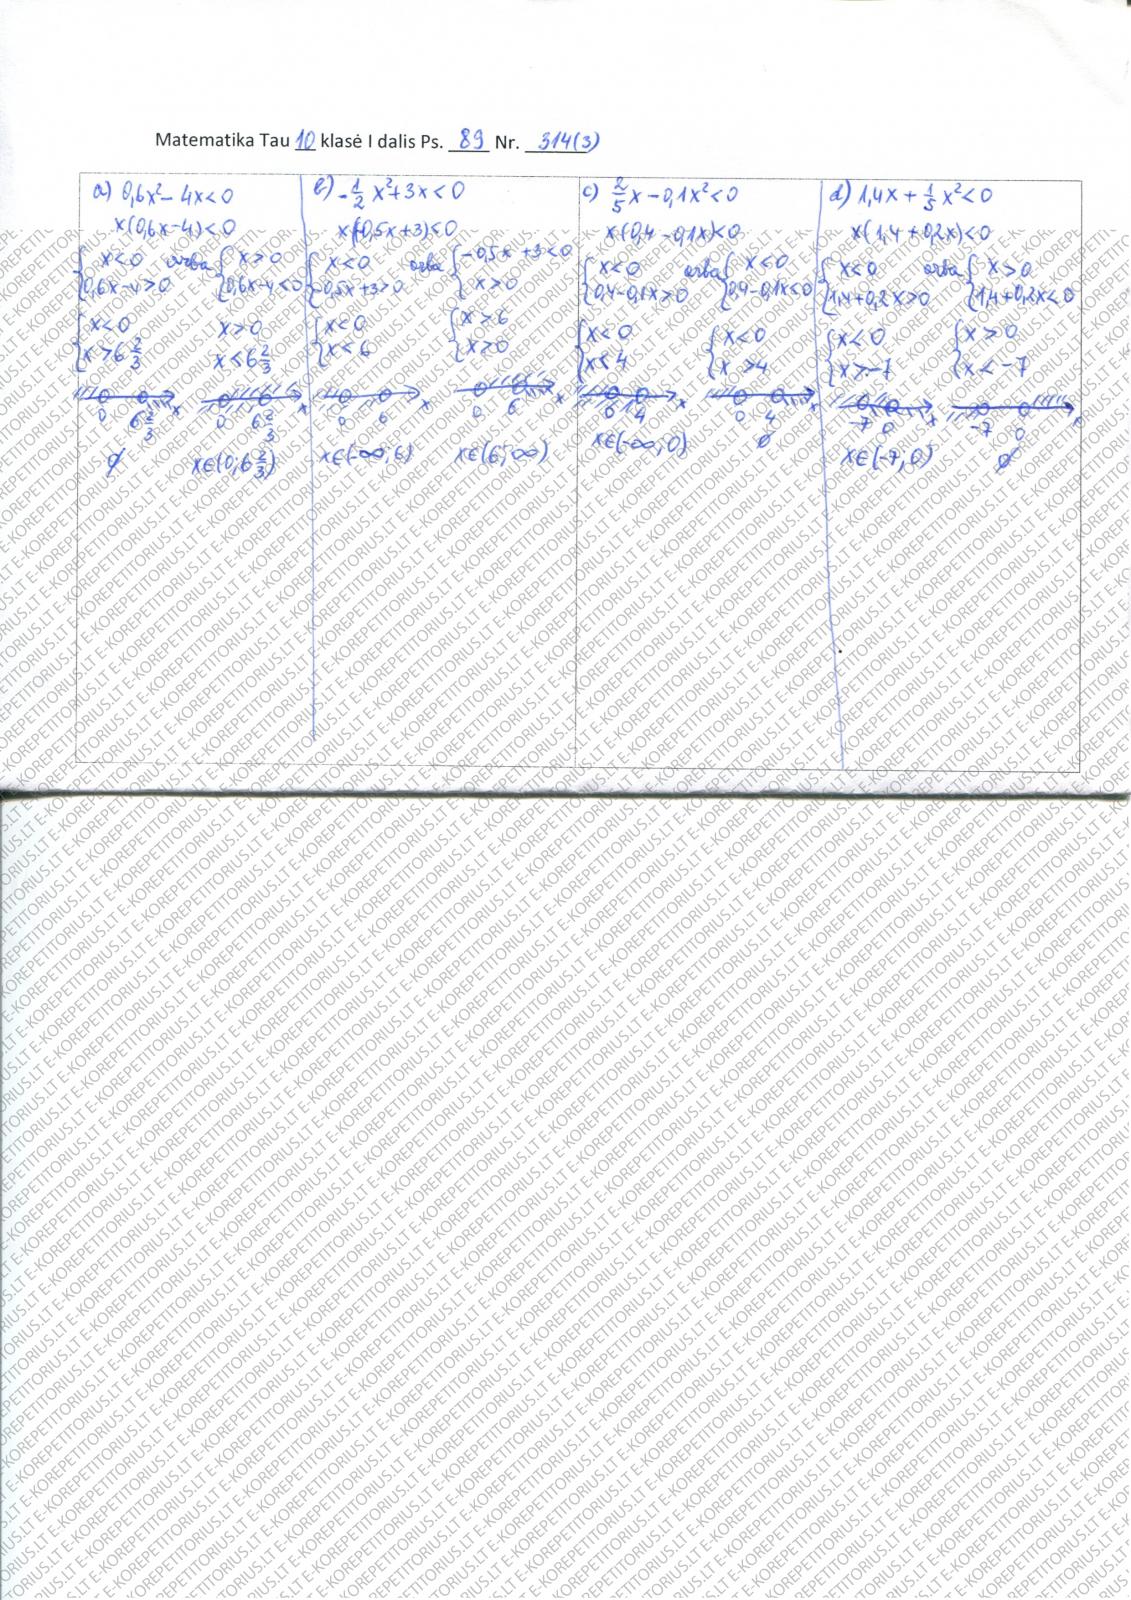 Matematika Tau 10 klasė I dalis Ps. 89 Nr. 314(3)
a) 0,6x² - 4x < 0
x(0,6x-4) < 0
{ x<0 arba { x>0
{ 0,6x-4>0 { 0,6x-4<0
{ x<0 x>0
{ x>6 2/3 x<6 2/3
0 6 2/3 x 0 6 2/3 x
∅ x∈(0; 6 2/3)
b) -1/2 x²+3x<0
x(-0,5x+3)<0
{ x<0 arba { -0,5x+3<0
{ -0,5x+3>0 { x>0
{ x<0 { x>6
{ x<6 { x>0
0 6 x 0 6 x
x∈(-∞; 6) x∈(6; ∞)
c) 2/5 x - 0,1x² < 0
x(0,4-0,1x)<0
{ x<0 arba { x<0
{ 0,4-0,1x>0 { 0,4-0,1x<0
{ x<0 { x<0
{ x<4 { x>4
0 4 x 0 4 x
x∈(-∞; 0) ∅
d) 1,4x + 1/5 x² < 0
x(1,4+0,2x)<0
{ x<0 arba { x>0
{ 1,4+0,2x>0 { 1,4+0,2x<0
{ x<0 { x>0
{ x>-7 { x<-7
-7 0 x -7 0 x
x∈(-7; 0) ∅
E-KOREPETITORIUS.LT